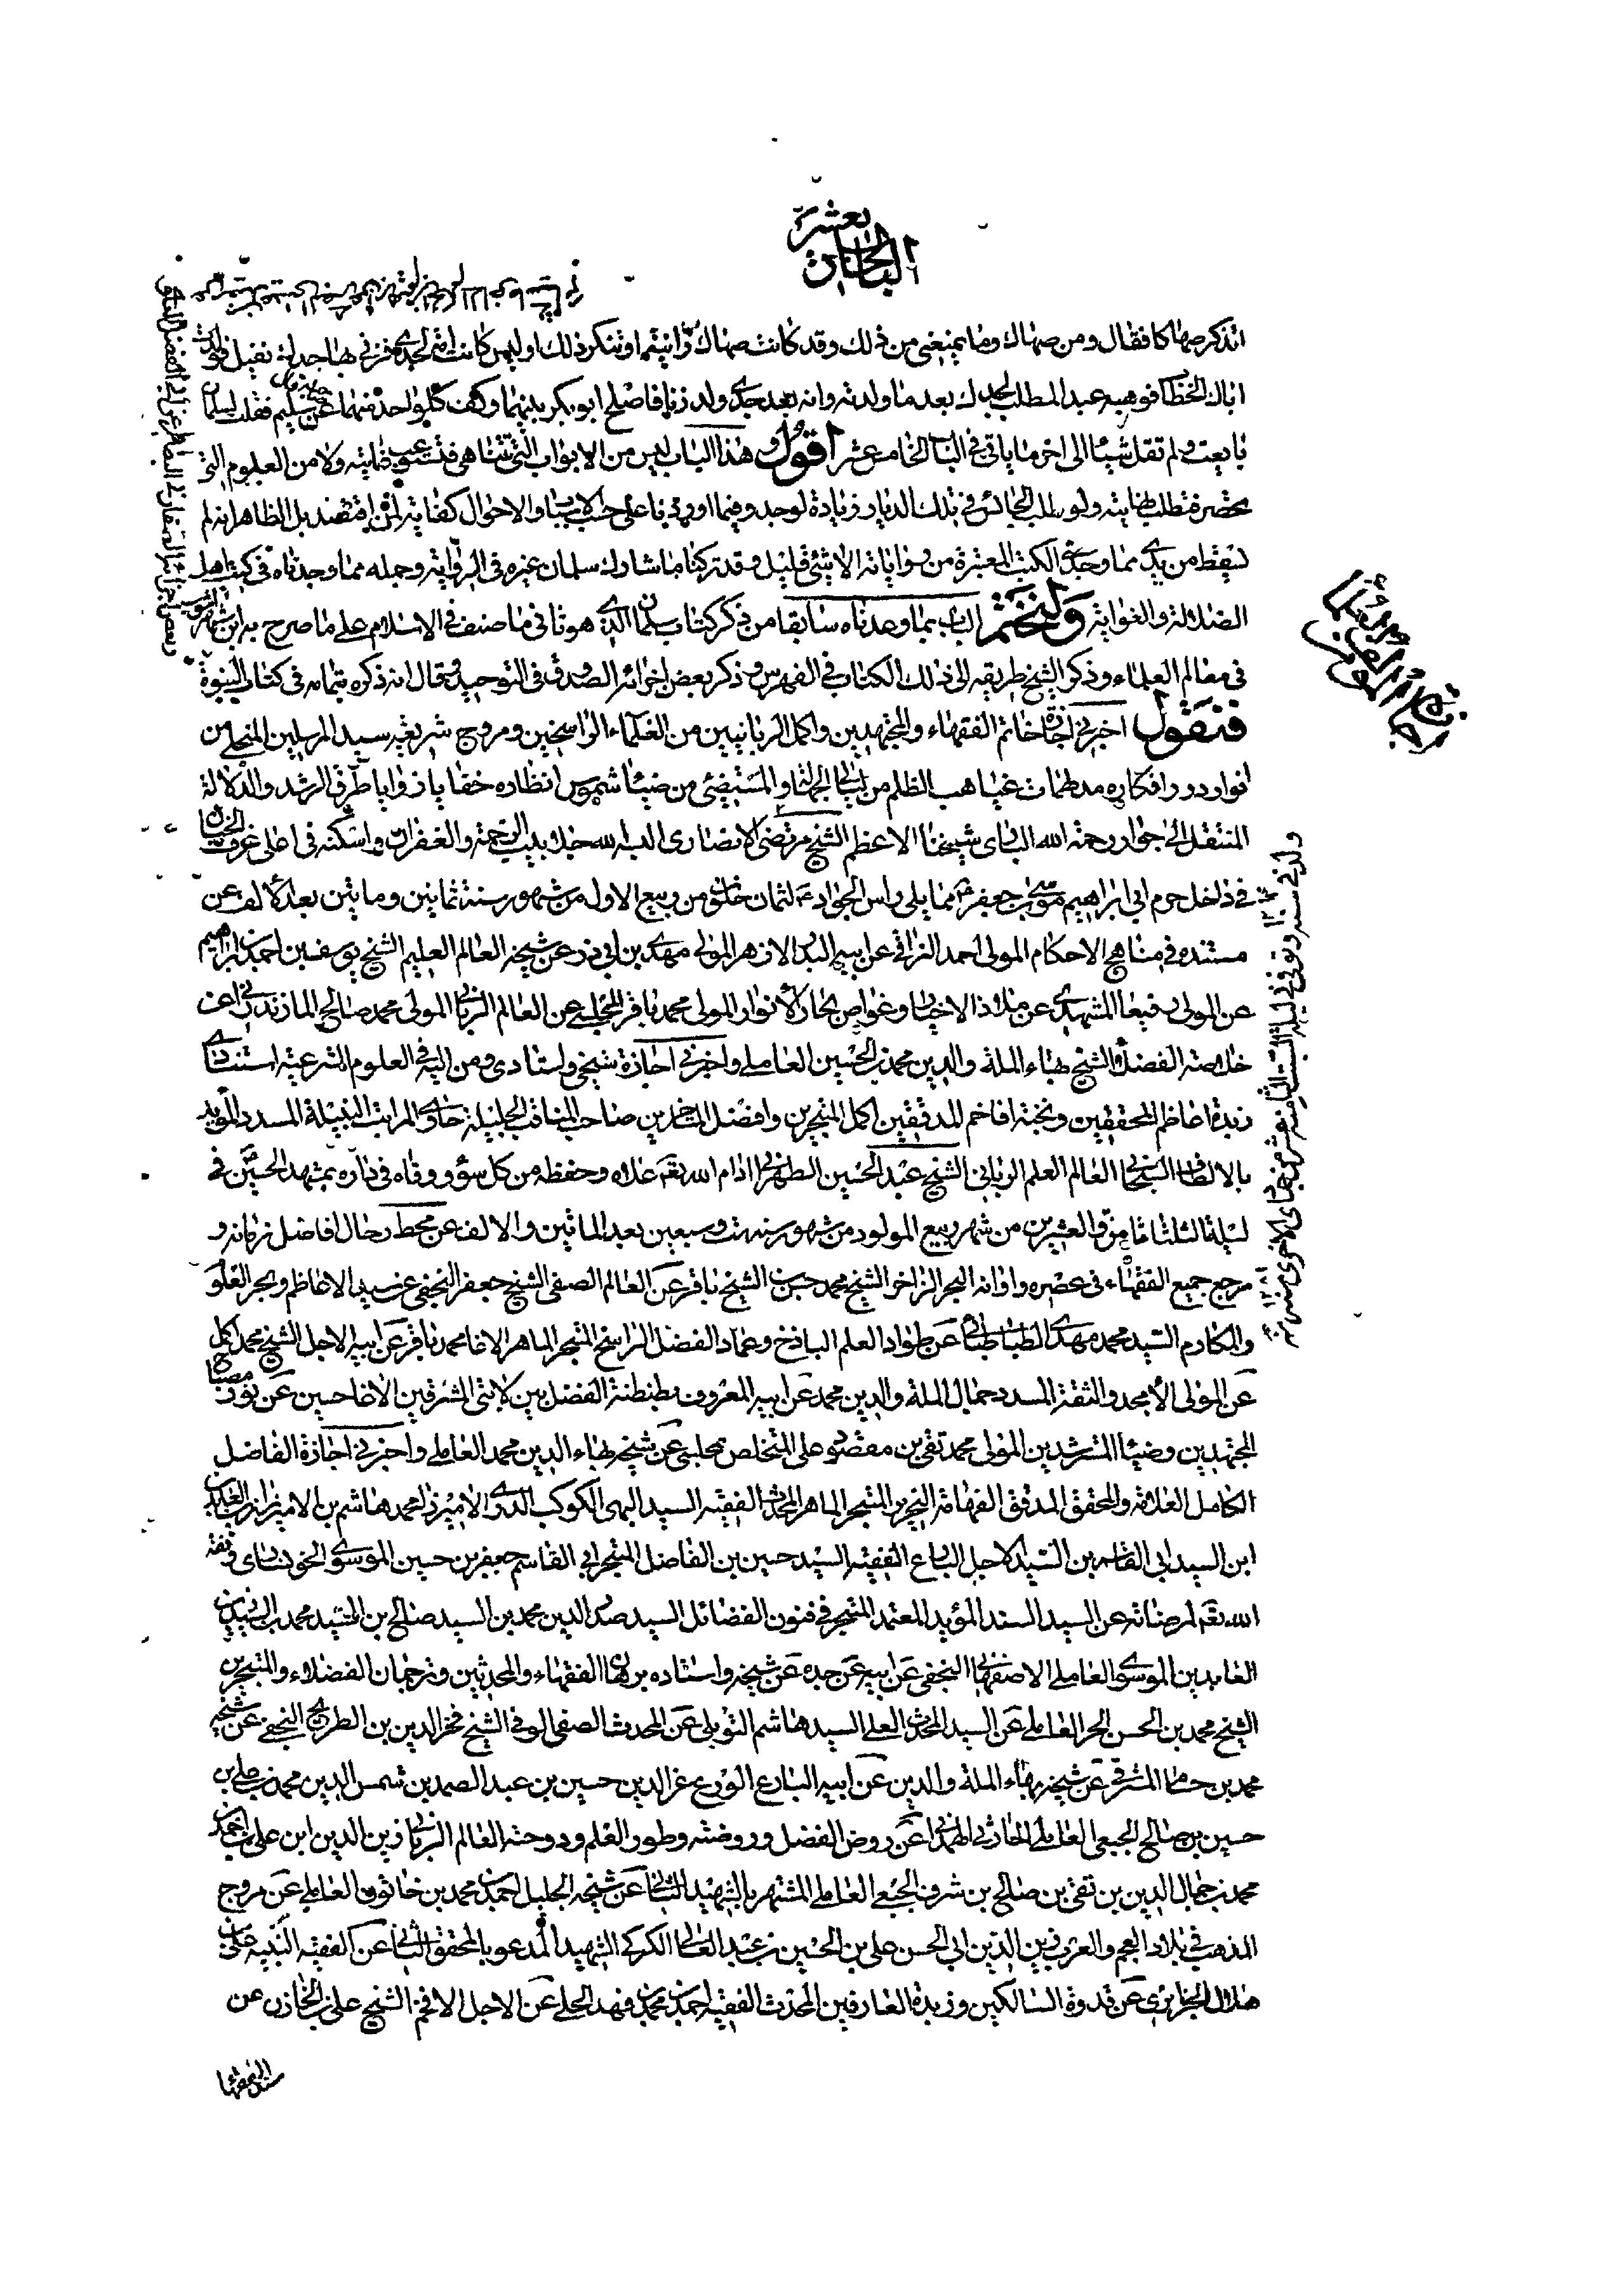 الباب الخامس عشر
اتذكر صهاكا فقال ومن صهاك وما يمنعني من ذلك وقد كانت صهاك زانية او تنكر ذلك اوليس كانت امة لجدي فزنى بها جدك نفيل فولدت
اباك الخطاب فوهبه عبد المطلب لجدك بعد ما ولدته وانه بعد جدي ولد زنا فاصلح ابو بكر بينهما وكف كل واحد منهما عن صاحبه قال سليم فقلت لسلمان
بايعت ولم تقل شيئا الى اخر ما ياتي في الباب الخامس عشر اقول وهذا الباب ليس من الابواب التي تتناهى ولا من العلوم التي
تحضر فتطلب ولو في تلك الديار وزيادة لوجد وفيما اوردنا على حسب الاسباب والاحوال كفاية بل الظاهر انه لم
يسقط من يدي مما وجد في الكتب المعتبرة من رواياته الا شيء قليل وقد تركنا ما شارك سلمان غيره في الرواية وجمله مما وجدناه في كتب اهل
الضلالة والغواية ولنختم الباب بما وعدناه سابقا من ذكر كتاب سلمان الذي هو ثاني ما صنف في الاسلام على ما صرح به ابن شهر اشوب
في معالم العلماء وذكر الشيخ طريقه الى ذلك الكتاب في الفهرس وذكر بعض اجزائه الصدوق في التوحيد وقال انه ذكره بتمامه في كتاب النبوة
فنقول اخبرني اجازة خاتم الفقهاء والمجتهدين واكمل الربانيين من العلماء الراسخين ومروج شريعة سيد المرسلين المنجلي من
انوار درر افكاره مدلهمات غياهب الظلم من ليالي الجهالة والمستضيئ من ضياء شموس انظاره خفايا زوايا طرق الرشد والدلالة
المنتقل الى جوار رحمة الله الباري شيخنا الاعظم الشيخ مرتضى الانصاري البسه الله جلابيب الرحمة والغفران واسكنه في اعلى غرف الجنان
في داخل حرم ابي ابراهيم موسى بن جعفر مما يلي راس الجواد لثمان خلون من ربيع الاول من شهور سنة ثمانين وماتين بعد الالف عن
مستنده في مناهج الاحكام المولى احمد النراقي عن ابيه البدر الازهر المولى مهدي بن ابي ذر عن شيخه العالم العليم الشيخ يوسف بن احمد بن ابراهيم
عن المولى رفيعا المشهدي عن ملاذ الاخيار وغواص بحار الانوار المولى محمد باقر المجلسي عن العالم الرباني المولى محمد صالح المازندراني عن
خلاصة الفضلاء الشيخ بهاء الملة والدين محمد بن الحسين العاملي واخبرني اجازة شيخي واستادي ومن اليه في العلوم الشرعية استنادي
زبدة اعاظم المحققين ونخبة افاخم المدققين اكمل المتبحرين وافضل المتاخرين صاحب المناقب الجليلة حاوي المراتب النبيلة المسدد المؤيد
بالالطاف السبحاني العالم العلم الرباني الشيخ عبد الحسين الطهراني ادام الله تعالى علاه وحفظه من كل سوء ووقاه في داره بمشهد الحسين في
ليلة الثلثا ثامن والعشرين من شهر ربيع المولود من شهور سنة ست وسبعين بعد الماتين والالف عن محط رحال افاضل زمانه و
مرجع جميع الفقهاء في عصره واوانه البحر الزاخر الشيخ محمد حسن الشيخ باقر عن العالم الصفي الشيخ جعفر النجفي عن سيد الاعاظم وبحر العلوم
والمكارم السيد محمد مهدي الطباطبائي عن طواد العلم الباذخ وعماد الفضل الراسخ المتبحر الماهر الاغا محمد باقر عن ابيه الاجل الشيخ محمد اكمل
عن المولى الامجد والثقة المسدد جمال الملة والدين محمد عن ابيه المعروف بطنطنة الفضل بين لابتي المشرقين الاغا حسين عن نور مصباح
المجتهدين وضياء المسترشدين المولى محمد تقي بن مقصود علي المتخلص بمجلسي عن شيخه بهاء الدين محمد العاملي واخبرني اجازة الفاضل
الكامل العلامة والمحقق المدقق الفهامة النحرير المتبحر الماهر المحدث الفقيه السيد البهي الكوكب الدري الاميرزا محمد هاشم بن الاميرزا زين العابدين
ابن السيد ابي القاسم بن السيد الاجل البارع الفقيه السيد حسين بن الفاضل المتبحر ابي القاسم جعفر بن حسين الموسوي الخونساري وفقه
الله تعالى لمرضاته عن السيد السند المؤيد المعتمد المتبحر في فنون الفضائل السيد صدر الدين محمد بن السيد صالح بن السيد محمد بن السيد زين
العابدين الموسوي العاملي الاصفهاني النجفي عن ابيه عن جده عن شيخه واستاده برهان الفقهاء والمحدثين وترجمان الفضلاء والمتبحرين
الشيخ محمد بن الحسن الحر العاملي عن السيد المحدث العلي السيد هاشم التوبلي عن المحدث الصفي الوفي الشيخ فخر الدين بن الطريحي النجفي عن شيخه
محمد بن حسام المشرقي عن شيخه بهاء الملة والدين عن ابيه البارع الورع عز الدين حسين بن عبد الصمد بن شمس الدين محمد بن علي بن
حسين بن صالح الجبعي العاملي الحارثي الهمداني عن روض الفضل وروضته وطور العلم ودوحته العالم الرباني زين الدين ابن علي بن احمد
محمد بن جمال الدين بن تقي بن صالح بن شرف الجبعي العاملي المشتهر بالشهيد الثاني عن شيخه الجليل احمد بن محمد بن خاتون العاملي عن مروج
المذهب في بلاد العجم والعرب زين الدين ابي الحسن علي بن الحسين بن عبد العالي الكركي الشهيد المدعو بالمحقق الثاني عن الفقيه النبيه علي بن
هلال الجزائري عن قدوة السالكين وزبدة العارفين المحدث الفقيه احمد بن محمد بن فهد الحلي عن الاجل الافخم الشيخ علي بن الخازن عن
ولد في سنة وتوفي في ليلة السبت الثامنة عشر من جمادى الاخرى سنة ١٢٨١